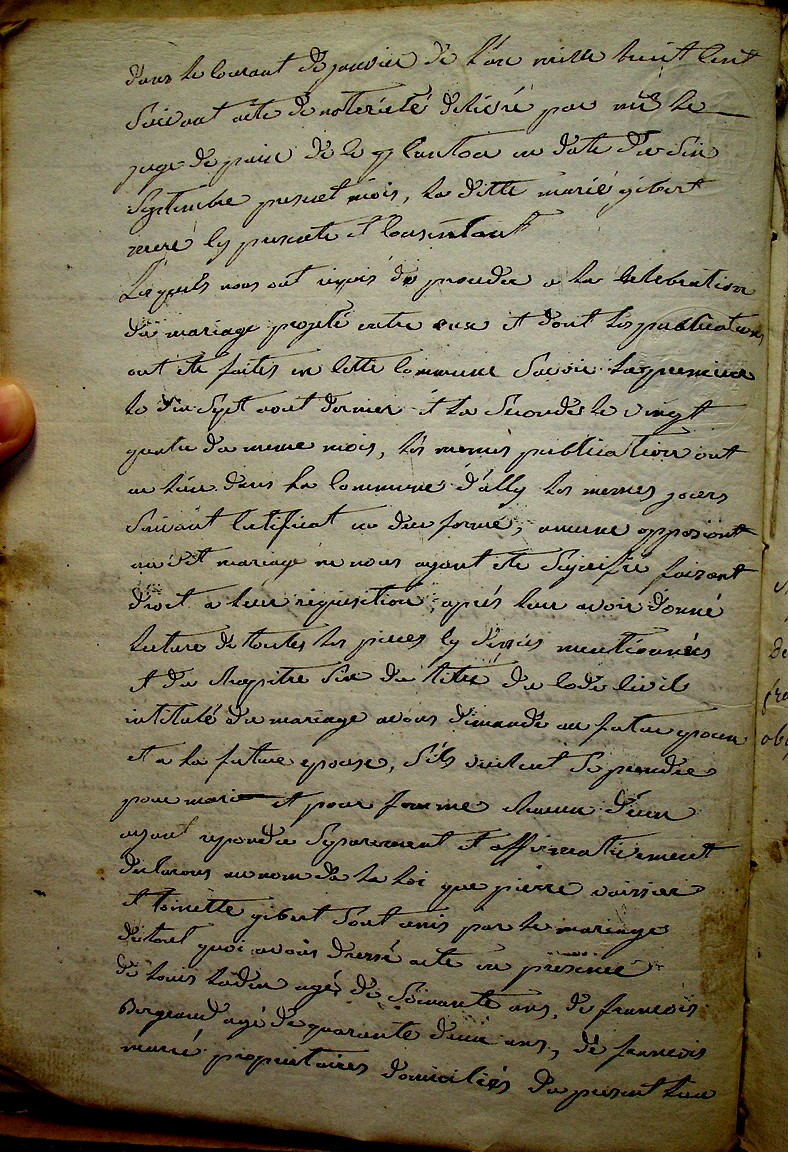 dans le courant de janvier de l'an mille huit cent
suivant acte de notorieté delivré par mr le
juge de paix de ce canton en date du six
septembre present mois, la ditte marie gibert
mere cy presente et consentant
Lesquels nous ont requis de proceder a la celebration
du mariage projeté entre eux et dont les publications
ont ete faites en cette commune savoir la premiere
le dix sept aout dernier et la seconde le vingt
quatre du meme mois, les memes publication ont
eu lieu dans la commune d'ally les memes jours
suivant certificat en due forme, aucune opposiont
au dit mariage ne nous ayant ete signifie faisant
droit a leur requisition, après leur avoir donné
lecture de toutes les pieces cy dessus mentionnées
et du chapitre six du titre du code civil
intitulé du mariage avons demandé au futur epoux
et a la future epouse, s'ils veulent se prendre
pour mari et pour femme chacun d'eux
ayant repondu separement et affirmativement
declarons au nom de la loi que pierre
et toinette gibert sont unis par le mariage
de tout quoi avons dressé acte en presence
de louis agé de soixante ans, de francois
agé de quarante deux ans, de francois
proprietaires domiciliés du present lieu